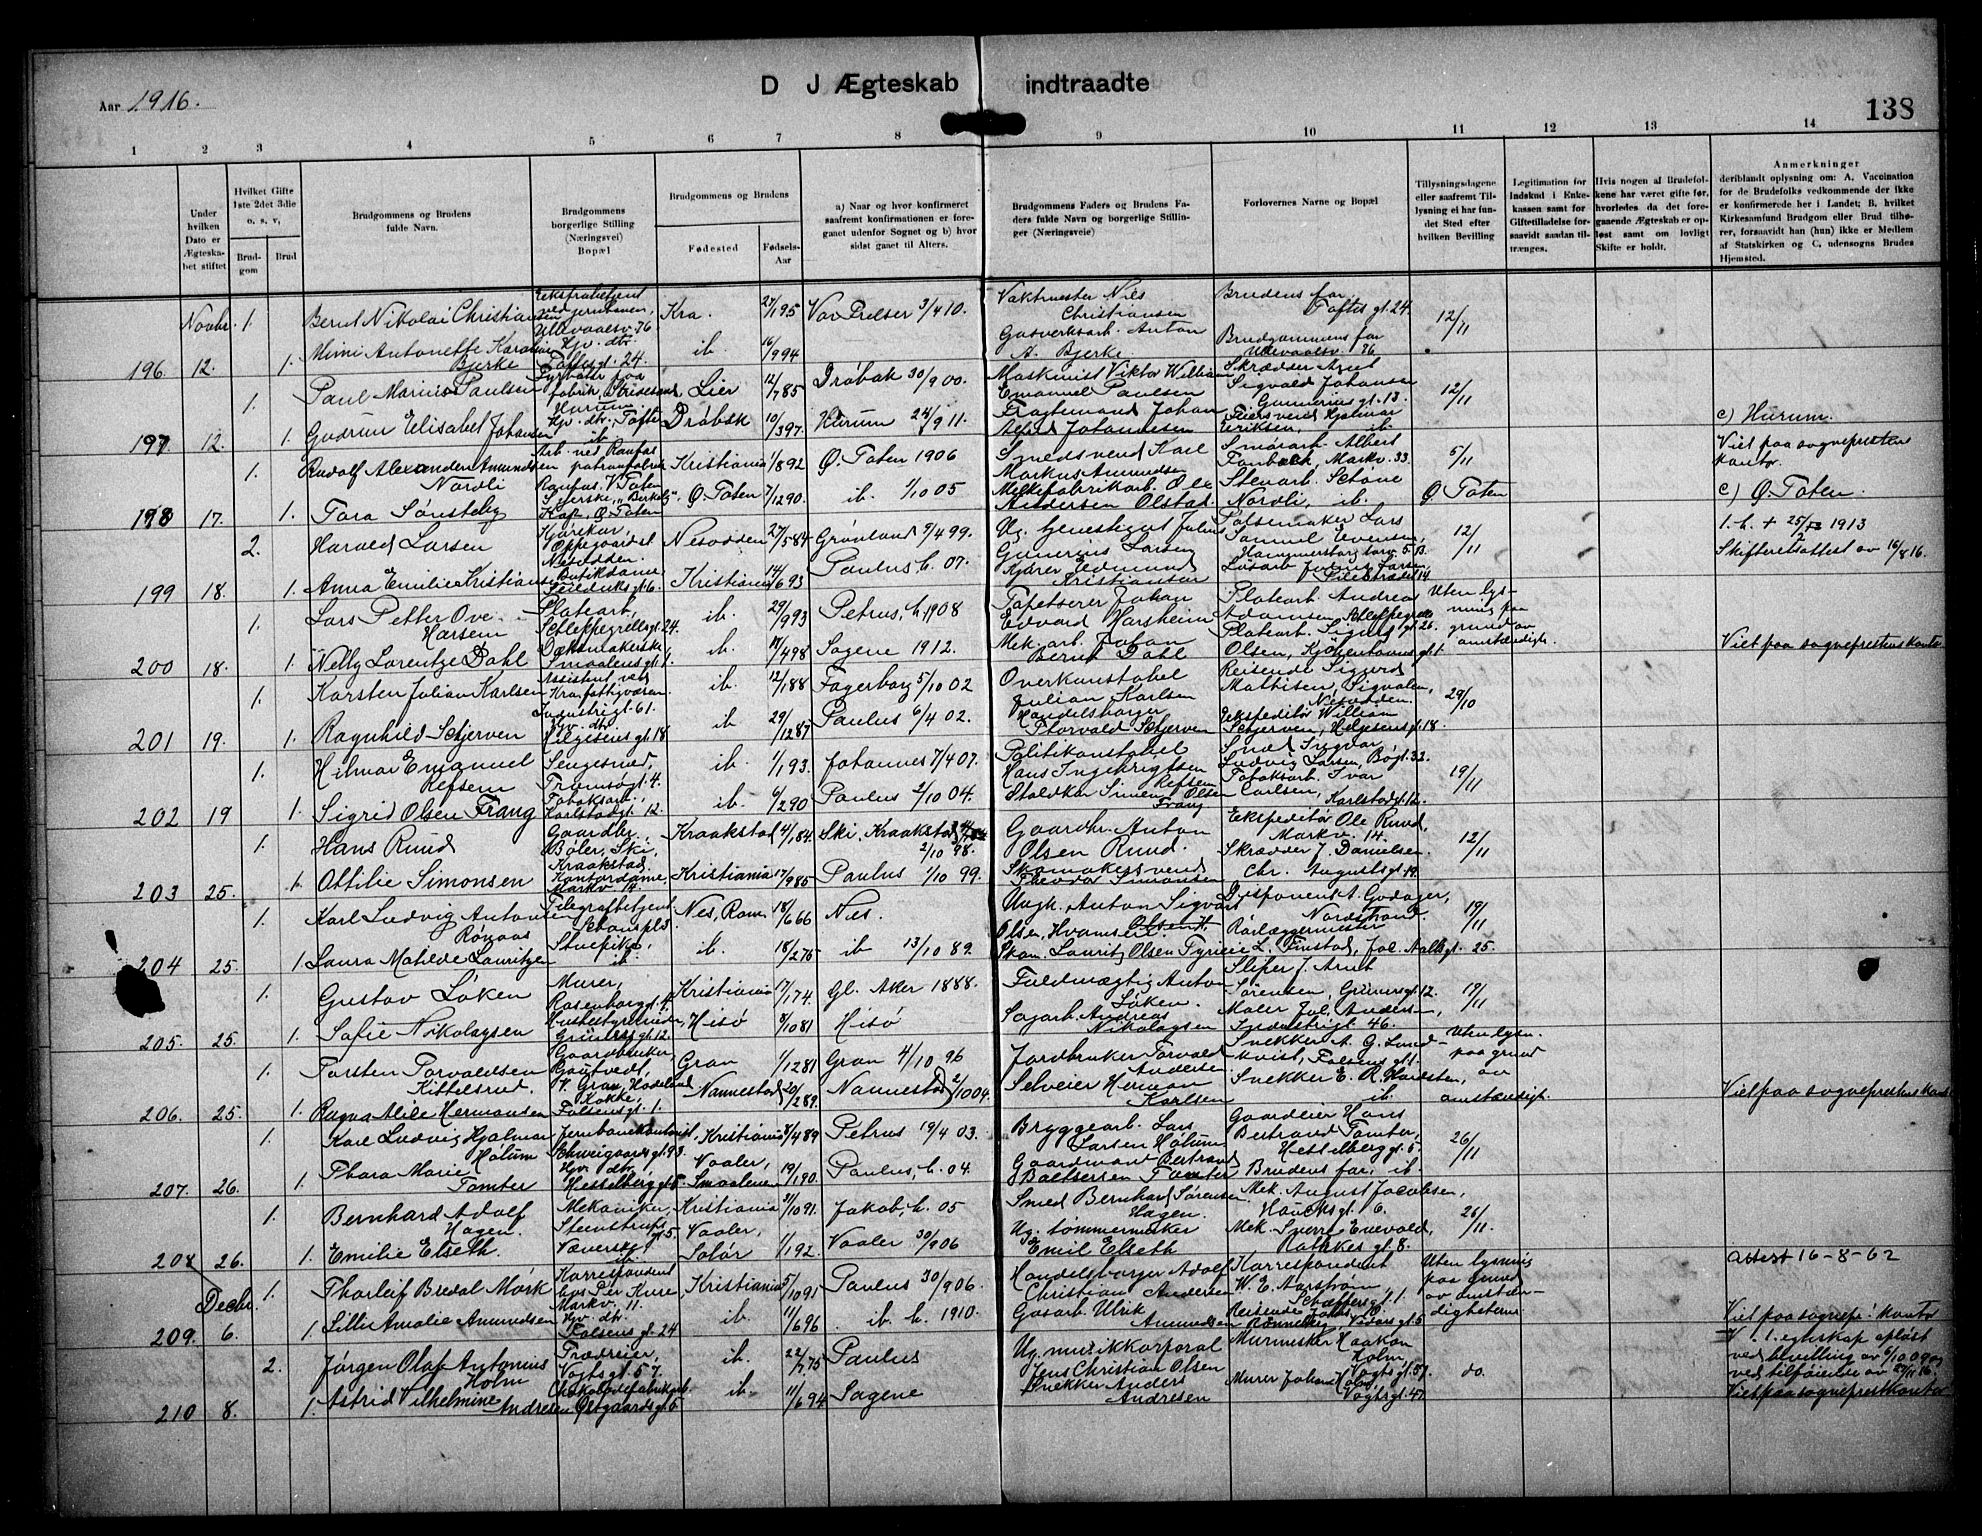 Aar 1916.
D J Ægteskab indtraadte
138
1 2 3 4 5 6 7 8 9 10 11 12 13 14
Under hvilken Dato er Ægteskabet stiftet
Hvilket Gifte 1ste 2det 3die o. s. v,
Brudgom
Brud
Brudgommens og Brudens fulde Navn.
Brudgommens borgerlige Stilling (Næringsvei) Bopæl
Brudgommens og Brudens
Fødested
Fødsels-Aar
a) Naar og hvor konfirmeret saafremt konfirmationen er foregaaet udenfor Sognet og b) hvor sidst gaaet til Alters.
Brudgommens Faders og Brudens Faders fulde Navn og borgerlige Stillinger (Næringsveie)
Forlovernes Navne og Bopæl
Tillysningsdagene eller saafremt Tillysning ei har fundet Sted efter hvilken Bevilling
Legitimation for Indskud i Enkekassen samt for Giftetilladelse forsaavidt saadan tiltrænges.
Hvis nogen af Brudefolkene har været gifte før, hvorledes da det foregaaende Ægteskab er opløst samt om lovligt Skifte er holdt.
Anmerkninger
deriblandt oplysning om: A. Vaccination for de Brudefolks vedkommende der ikke er konfirmerede her i Landet; B. hvilket Kirkesamfund Brudgom eller Brud tilhører, forsaavidt han (hun) ikke er Medlem af Statskirken og C, udensogns Brudes Hjemsted.
Novbr. 1. Bernt Nikolai Christiansen Ullevaalsv. 76 Kra. 27/1 95 Vor Frelser 3/4 10. Vaktmester Nils Christiansen Brudens far, Toftes gt. 24. 12/11
196. 12. 1. Mimi Antonette Karoline Bjerke Hjv. dtr. Toftesgt. 24. ib. 16/9 94 Gasverksarb. Anton A. Bjerke Brudgommens far Ullevaalsv. 76
1. Paul Marius Paulsen Fyrbøter paa fabrik, Hurum Lier 12/7 85 Drøbak 30/9 00. Maskinist Viktor William Emanuel Paulsen Skrædder Arnt Sigvald Johansen 12/11
197 12. 1. Gudrun Elisabet Johansen Hjv. dtr. Tofte ib. Drøbak 10/3 97. Hurum 24/9 11. Fragtemand Johan Alfred Johannesen Feiersvend Hjalmar Eriksen, ib. c) Hurum.
1. Rudolf Alexander Amundsen Nordli Arb. ved Raufos patronfabrik Raufos. V. Toten Kristiania 1/8 92 Ø. Toten 1906 Smedsvend Karl Markus Amundsen Albert Markv. 33. 5/11 Viet paa sognepresten kontor
198 17. 1. Tora Sønsteby Ø. Toten Ø. Toten 7/12 90. ib. 1/10 05 Melkefabrikarb. Ole Andersen Olstad Nordli, ib. Ø Toten c) Ø. Toten.
2. Harald Larsen Oppegaard Nesodden. Nesodden 27/5 84 Grønland 9/4 99. Gunerius Larsen Pølsemaker Lars Samuel Evensen, Hammersborg torv 5 B. 12/11 1. h. + 25/2 1913 Skifteretsattest av 16/8 16.
199 18. 1. Anna Emilie Kristiansen Butikdame Kristiania 14/6 93 Paulus h. 07. Kjører Edmund Kristiansen Løsarb Julius Larsen,
1. Lars Petter Ove Harsem Platearb, Schleppegrellsgt. 24. ib. 29/9 93 Petrus, h. 1908 Tapetserer Johan Edvard Harsheim Platearb. Andreas Adamsen Uten lysning paa grund av omstændigh.
200 18. 1. Nelly Lorentze Dahl Smaalensgt. 1. ib. 17/4 98 Sagene 1912. Mek. arb. Johan Bernt Dahl Platearb. Sigurd Olsen, Viet paa sogneprestens kontor
1. Karsten Julian Karlsen Assistent ved Industrigt. 61. ib. 12/1 88 Fagerborg 5/10 02 Overkonstabel Julian Karlsen Reisende Sigurd Mathisen, 29/10
201 19. 1. Ragnhild Schjerven Hjv. dtr. Helgesensgt. 18 ib 29/12 87 Paulus 6/4 02. Handelsborger Thorvald Schjerven Ekspeditør William Schjerven, Helgesensgt. 18.
1. Hilmar Emanuel Refsem Tromsøgt. 4. ib. 1/1 93. Johannes 7/4 07. Politikonstabel Hans Ingebrigtsen Refsem Smed Ingvar Ludvig Larsen, 19/11
202 19 1. Sigrid Olsen Frang Tobaksarb., Karlstadgt. 12. ib. 6/2 90 Paulus 2/10 04. Staldkar Simen Olsen Frang Tobaksarb. Ivar Carlsen, Karlstadgt. 12.
1. Hans Ruud Gaardbr. Bøler, Ski, Kraakstad, Kraakstad 4/1 84. Ski, Kraakstad 2/10 98. Gaardbr. Anton Olsen Ruud. Ekspeditør Ole Ruud, Markv. 14. 12/11
203 25. 1. Ottilie Simonsen Kontordame, Markv. 14. Kristiania 17/9 85 Paulus 1/10 99. Skomakersvend Theodor Simonsen Skrædder J. Danielsen Chr. Augustsgt. 19.
1. Karl Ludvig Antonsen Telegrafbetjent Nes, Rom. 18/6 66 Nes. Ungk. Anton Sigvart Olsen, Disponent A. Godager, Nordstrand. 19/11
204 25. 1. Laura Matilde Lauritzen Stuepike, ib. ib. 18/2 75 ib 13/10 89. Skom. Lauritz Olsen Rørlæggermester L. Finstad, Jac. Aallsgt. 25.
1. Gustav Løken Murer, Rosenborggt. 4 Kristiania 17/1 74. Gl. Aker 1888. Fuldmægtig Anton Løken. Sliper J. Arnt Sørensen, 19/11
205. 25. 1. Sofie Nikolaysen Hisø 8/10 81 Hisø Sagarb Andreas Nikolaysen Maler Joh. Andersen, 46.
1. Torsten Torvaldsen Kittelsrud. Gaardbruker, V. Gran, Hadeland Gran 1/12 81 Gran 4/10 96 Jordbruker Torvald Andersen Snekker A. G. Lundkvist, Falsensgt. 1. Uten lysn. paa grund av omstændigh.
206. 25. 1. Ragna Alice Hermansen Kokke, Falsensgt. 1. Nannestad 20/2 89. Nannestad 2/10 04. Selveier Herman Karlsen Snekker E. R. ib. Viet paa sogneprestens kontor
1. Karl Ludvig Hjalmar Holum Jernbanekontorist, Schweigaardsgt. 93. Kristiania 8/4 89 Petrus 19/4 03. Bryggearb. Lars Larsen Holum Gaardeier Hans Bertrand Tomter, Hesselberggt. 5. 26/11
207. 26. 1. Thora Marie Tomter Hjv. dtr. Hesselberggt. 5. Vaaler, Smaalenene 19/1 90. Paulus, h. 04. Gaardmand Bertrand Baltsersen Tomter Brudens far, ib.
1. Bernhard Adolf Hagen. Mekaniker, Stenstrupsgt. 5. Kristiania 31/10 91. Jakob, h. 05 Smed Bernhard Sørensen Hagen Mek. August Jacobsen, Haucksgt. 6. 26/11.
208 26. 1. Emilie Elseth. Væverske ib. Vaaler, Solør 1/1 92. Vaaler 30/9 06 Ug. tømmermester Emil Elseth Mek. Sverre Enevold, Rathkesgt. 8. Attest 16-8-62
Decbr. 1. Thorleif Bredal Mørk Korrespondent hos Per Kure, Markv. 11. Kristiania 5/10 91 Paulus 30/9 06. Handelsborger Adolf Christian Andersen Korrespondent W. E. Aarstrøm, Schæffersgt. 1. Uten lysning paa grund av omstændigheterne
209. 6. 1. Lilli Amalie Amundsen Hjv. dtr. Falsens gt. 24 ib. 11/6 96 ib. h. 1910. Gasarb Ulrik Amundsen Viet paa sognepr. kontor
2. Jørgen Olaf Antonius Holm Vogtsgt. 57. ib. 22/7 75 Paulus Ug. musikkorporal Jens Christian Olsen Murmester Haakon Holm Vogtsgt. 57. do. 1. egteskap opløst ved bevilling av 6/10 09 og ved tilføielse av 27/11 16.
210 8. 1. Astrid Vilhelmine Andresen Østgaardsgt. 6 ib. 11/6 94 Sagene Snekker Anders Andresen Murer Johan Holm Vogtsgt. 47. Viet paa sogneprestkontor